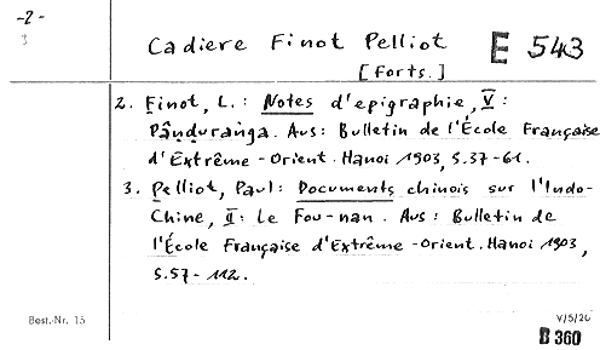 -2-
3
Cadiere Finot Pelliot E 543
[Forts.]
2. Finot, L.: Notes d'epigraphie, V:
Pânduranga. Aus: Bulletin de l'École Française
d'Extrême-Orient. Hanoi 1903, S.37-61.
3. Pelliot, Paul: Documents chinois sur l'Indo-
Chine, II: Le Fou-nan. Aus: Bulletin de
l'École Française d'Extrême-Orient. Hanoi 1903,
S.57-112.
Best.-Nr. 15
V/5/20
B 360